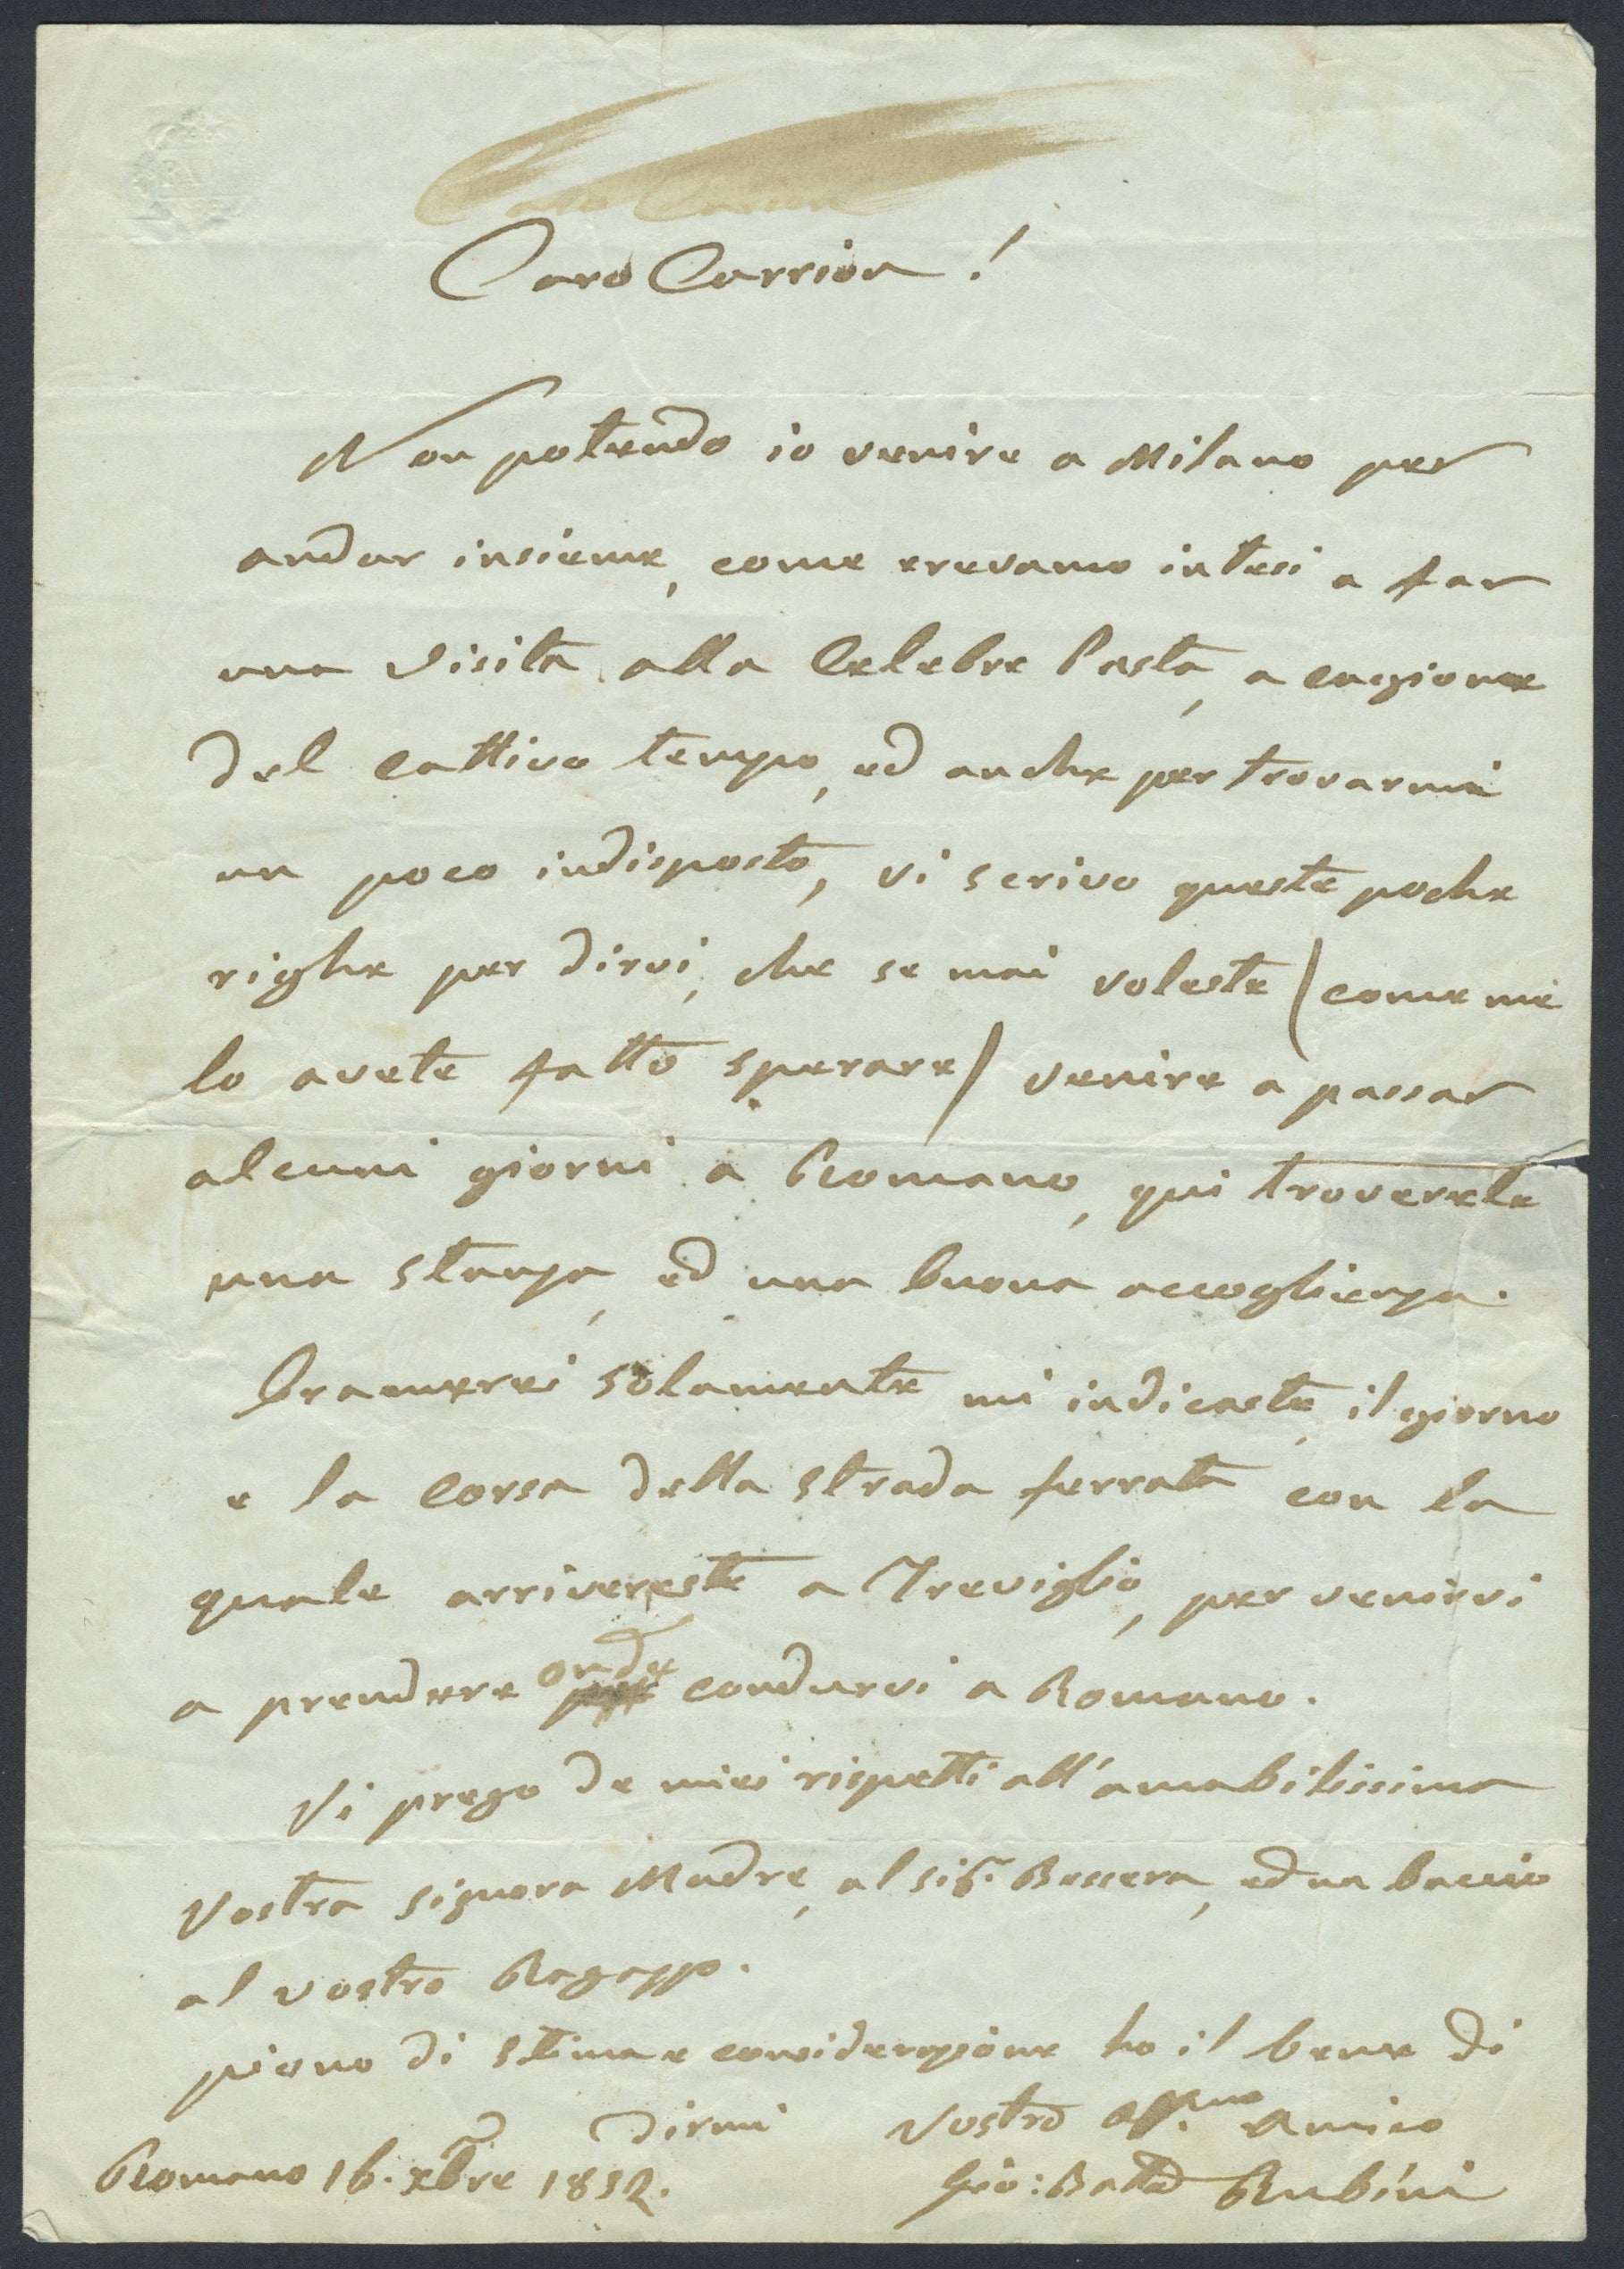 Caro Carrion
Caro Carrion!
Non potendo io venire a Milano per
andar insieme, come erevamo intesi a far
una visita alla Celebre Pasta, a cagione
del cattivo tempo, ed anche per trovarmi
un poco indisposto, vi scrivo queste poche
righe per dirvi, che se mai voleste (come mi
lo avete fatto sperare) venire a passar
alcuni giorni a Romano, qui troverete
una stanza, ed una buona accoglienza.
Bramerei solamente mi indicaste, il giorno
e la corsa della strada ferrata con la
quale arrivereste a Treviglio, per venirvi
a prendere onde condurvi a Romano.
Vi prego de miei rispetti all'amabilissima
vostra signora Madre, al sigr. Bessera, ed un baccio
al vostro Ragazzo.
pieno di stima e considerazione ho il bene di
dirmi Vostro Affmo. Amico
Romano 16. xbre 1852. Gio: Batta Rubini